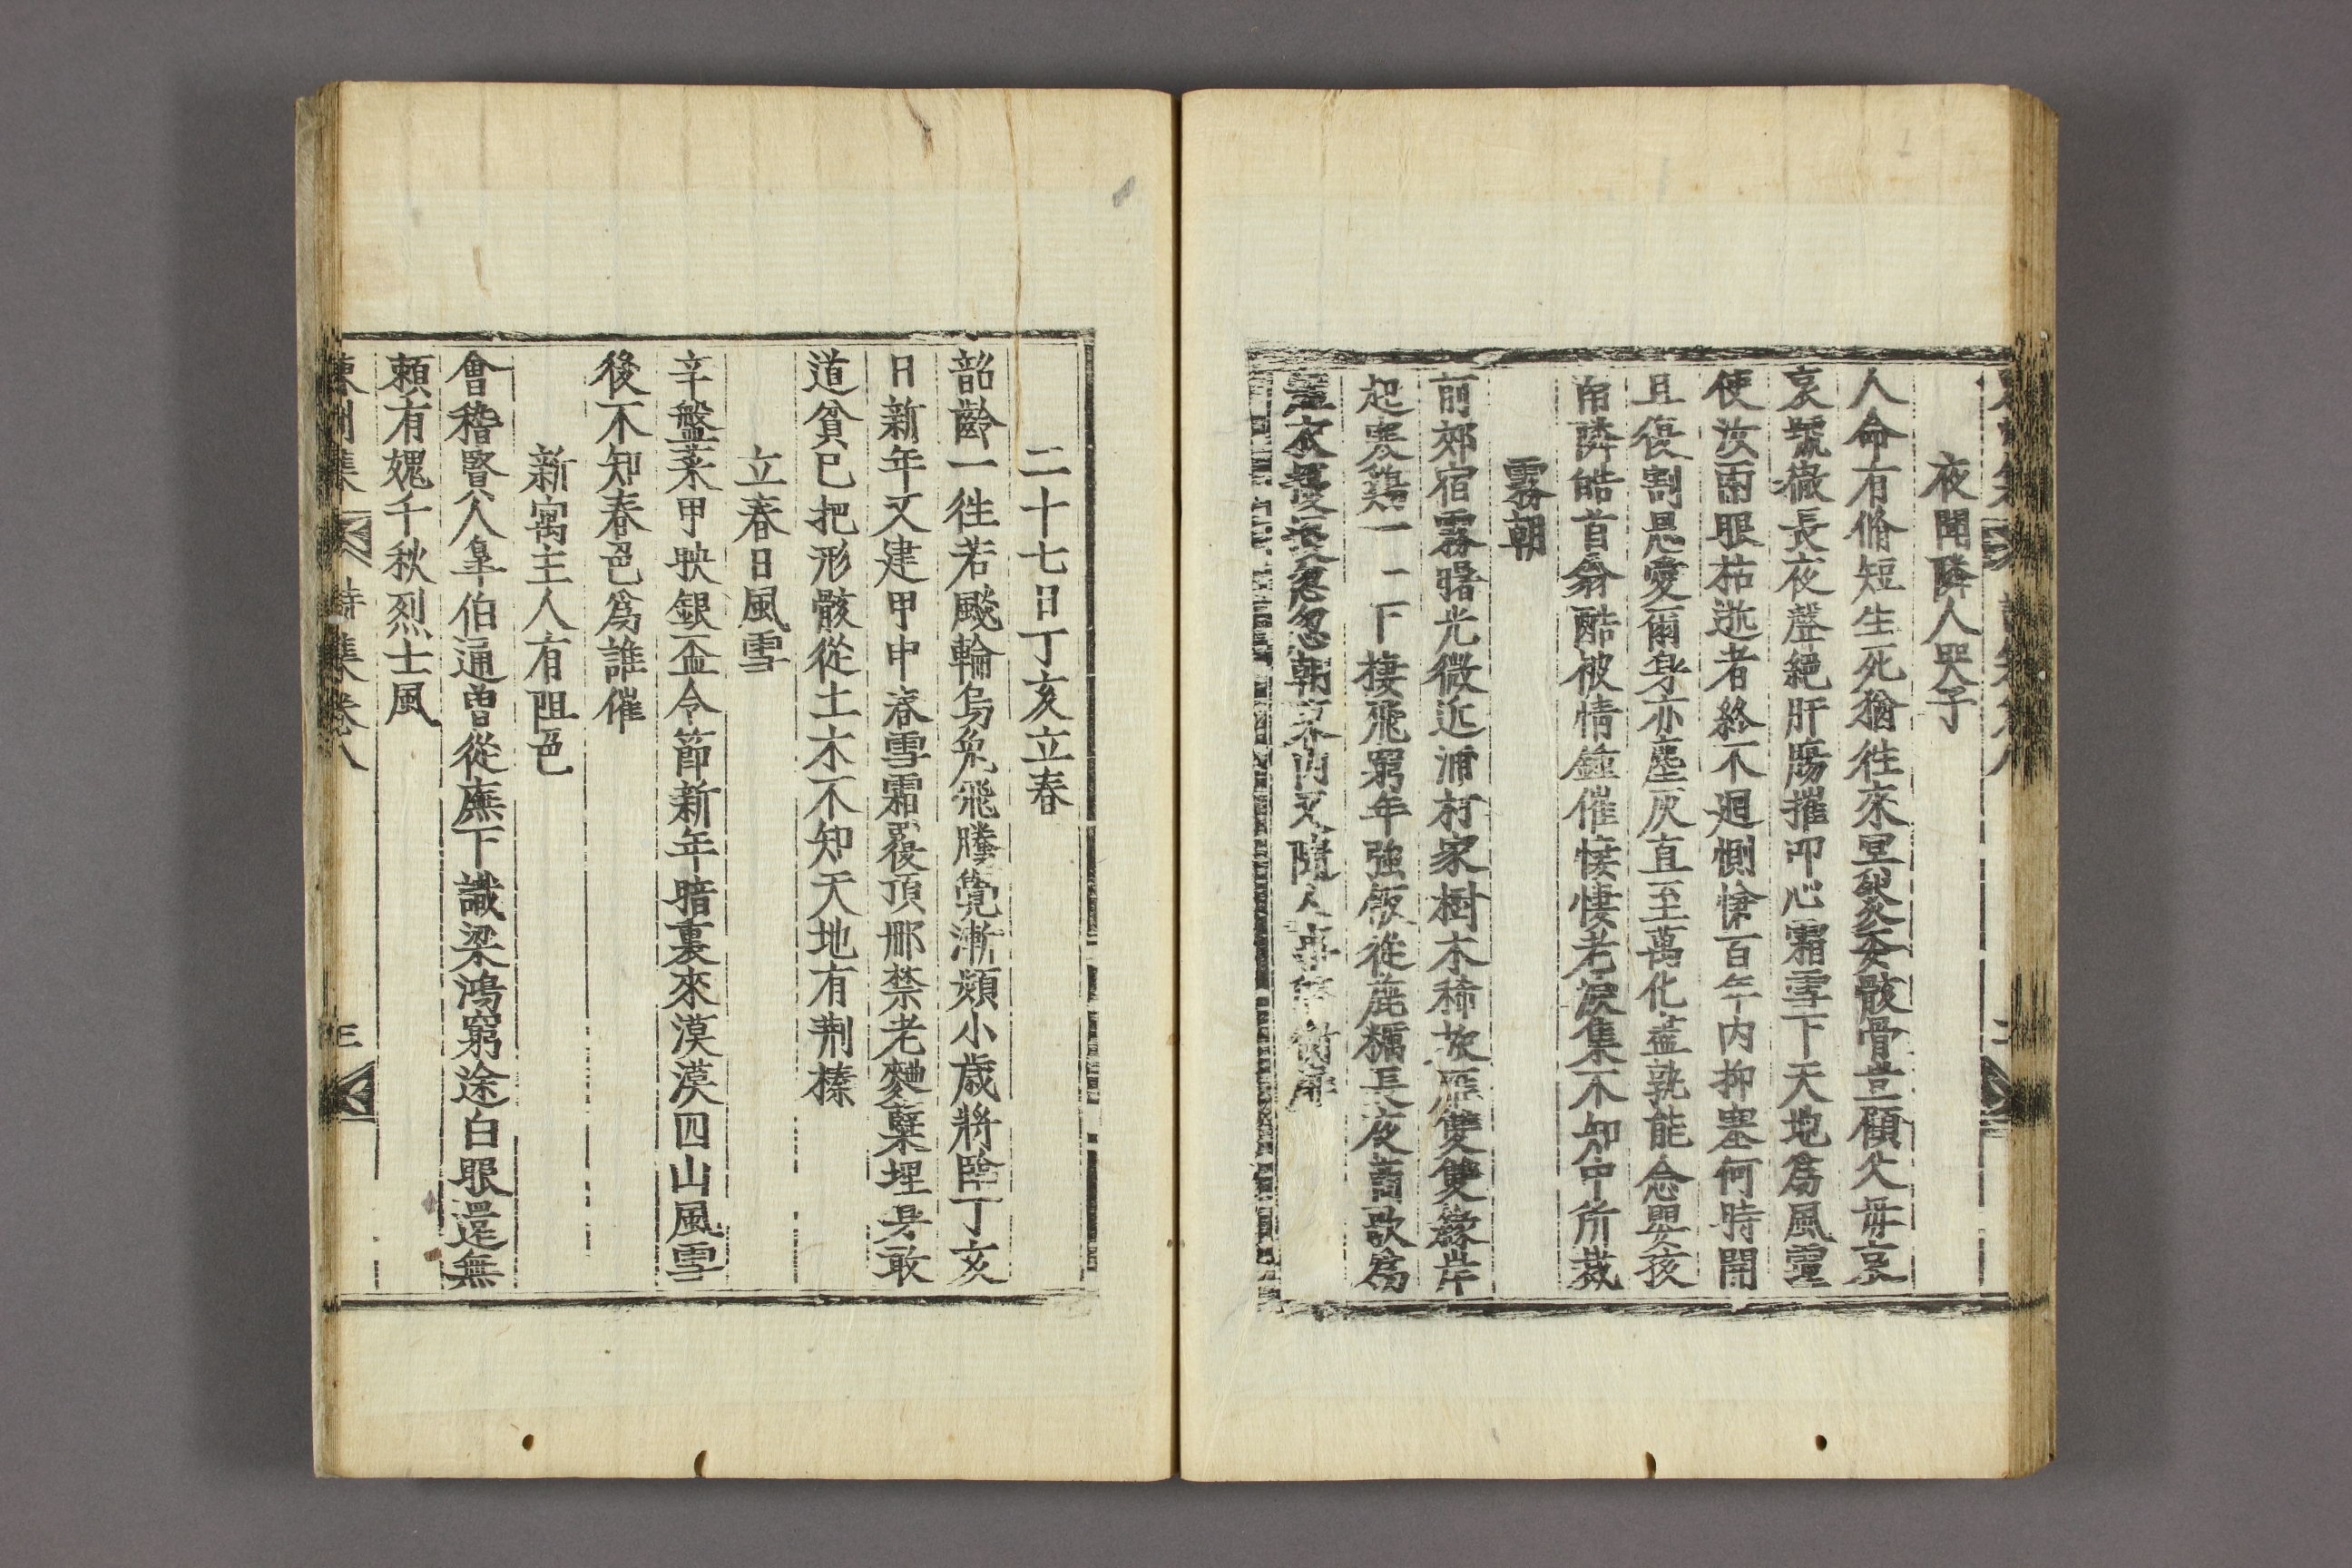 夜聞隣人哭子
人命有脩短生死猶往來冥然委骸骨豈顧父母哀
哀號徹長夜聲絕肝膓摧叩心霜雪下天地爲風霾
使汝兩眼枯逝者終不迴惻愴百年內抑塞何時開
且復割恩愛爾身亦塵灰直至萬化盡孰能念嬰孩
南隣皓首翁酷被情鍾催悽悽老淚集不知中所裁
霧朝
前郊宿霧曙光微近浦村家樹木稀苽雁雙雙緣岸
起寒鷄一一下棲飛窮年強飯從麁糲長夜商歌爲
短衣憂忽朝來內又隨人事
二十七日丁亥立春
韶齡一徃若颷輪烏兔飛騰覺漸頻小歲將臨丁亥
日新年又建甲申春雪霜覆頂那禁老麯糵埋身敢
道貧已把形骸從土木不知天地有荆榛
立春日風雪
辛盤菜甲映銀盃令節新年暗裏來漠漠四山風雪
後不知春色爲誰催
新寓主人有阻色
會稽賢人臯伯通曾從廡下識梁鴻窮途白眼還無
賴有媿千秋烈士風
東州集 詩集卷八 三